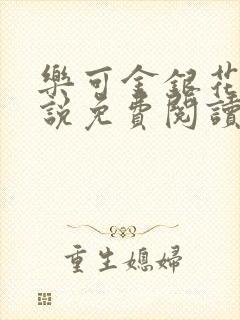 樂可金銀花
說免費閱讀
重生媳婦